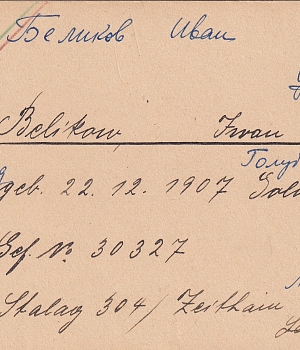 Беликов Иван
Belikow, Iwan
Голуб
geb. 22. 12. 1907
Gef. № 30327
Stalag 304 / Zeithain